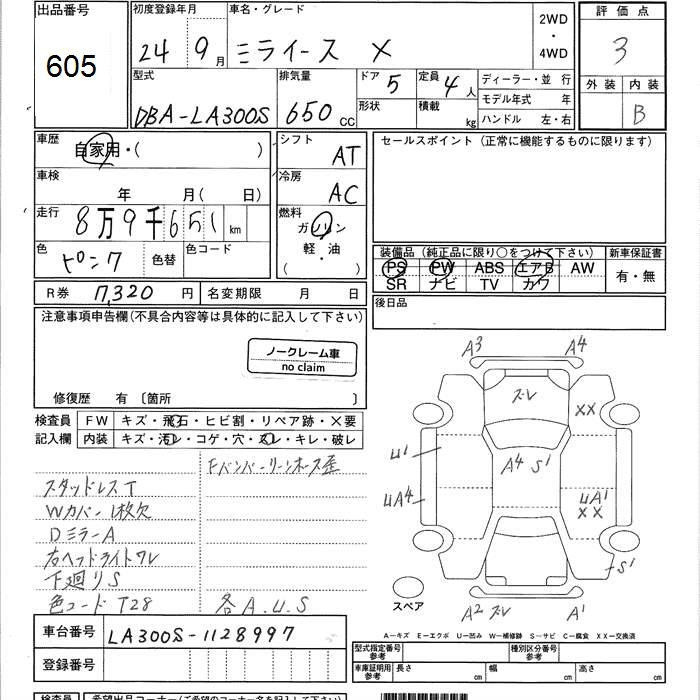 出品番号 初度登録年月 車名・グレード 2WD・4WD 評価点
605 24 9月 ミライース X 3
型式 排気量 ドア 5 定員 4人 ディーラー・並 行 外装 内装
DBA-LA300S 650 CC 形状 積載 kg モデル年式 年 B
ハンドル 左・右
車歴 自家用・( ) シフト AT セールスポイント (正常に機能するものに限ります)
車検 年 月(日) 冷房 AC
走行 8万9千651 km 燃料 ガソリン
色 ピンク 色替 色コード 軽・油 ( ・ )
装備品 (純正品に限り○をつけて下さい) 新車保証書
PS PW ABS エアB AW 有・無
SR ナビ TV カワ
R券 7,320 円 名変期限 月 日 後日品
注意事項申告欄(不具合内容等は具体的に記入して下さい)
ノークレーム車
no claim
修復歴 有 〔箇所 〕
検査員 FW キズ・飛石・ヒビ割・リペア跡・X要
記入欄 内装 キズ・汚レ・コゲ・穴・スレ・キレ・破レ
Fバンパーリーンホース歪
スタッドレスT
Wカバー1枚欠
DミラーA
右ヘッドライトワレ
下廻りS
色コード T28 各A.U.S
A3 A4
ズレ XX
U1 A4 S1
UA4 UA1
XX
S1
スペア A2 ズレ A1
車台番号 LA300S-1128997
登録番号
A-キズ E-エクボ U-凹み W-補修跡 S-サビ C-腐食 XX-交換済
型式指定番号 参考 種別区分番号 参考
車庫証明用 参考 長さ cm 幅 cm 高さ cm
検査員 希望出品コーナー(ご希望のコーナー名を記入して下さい)